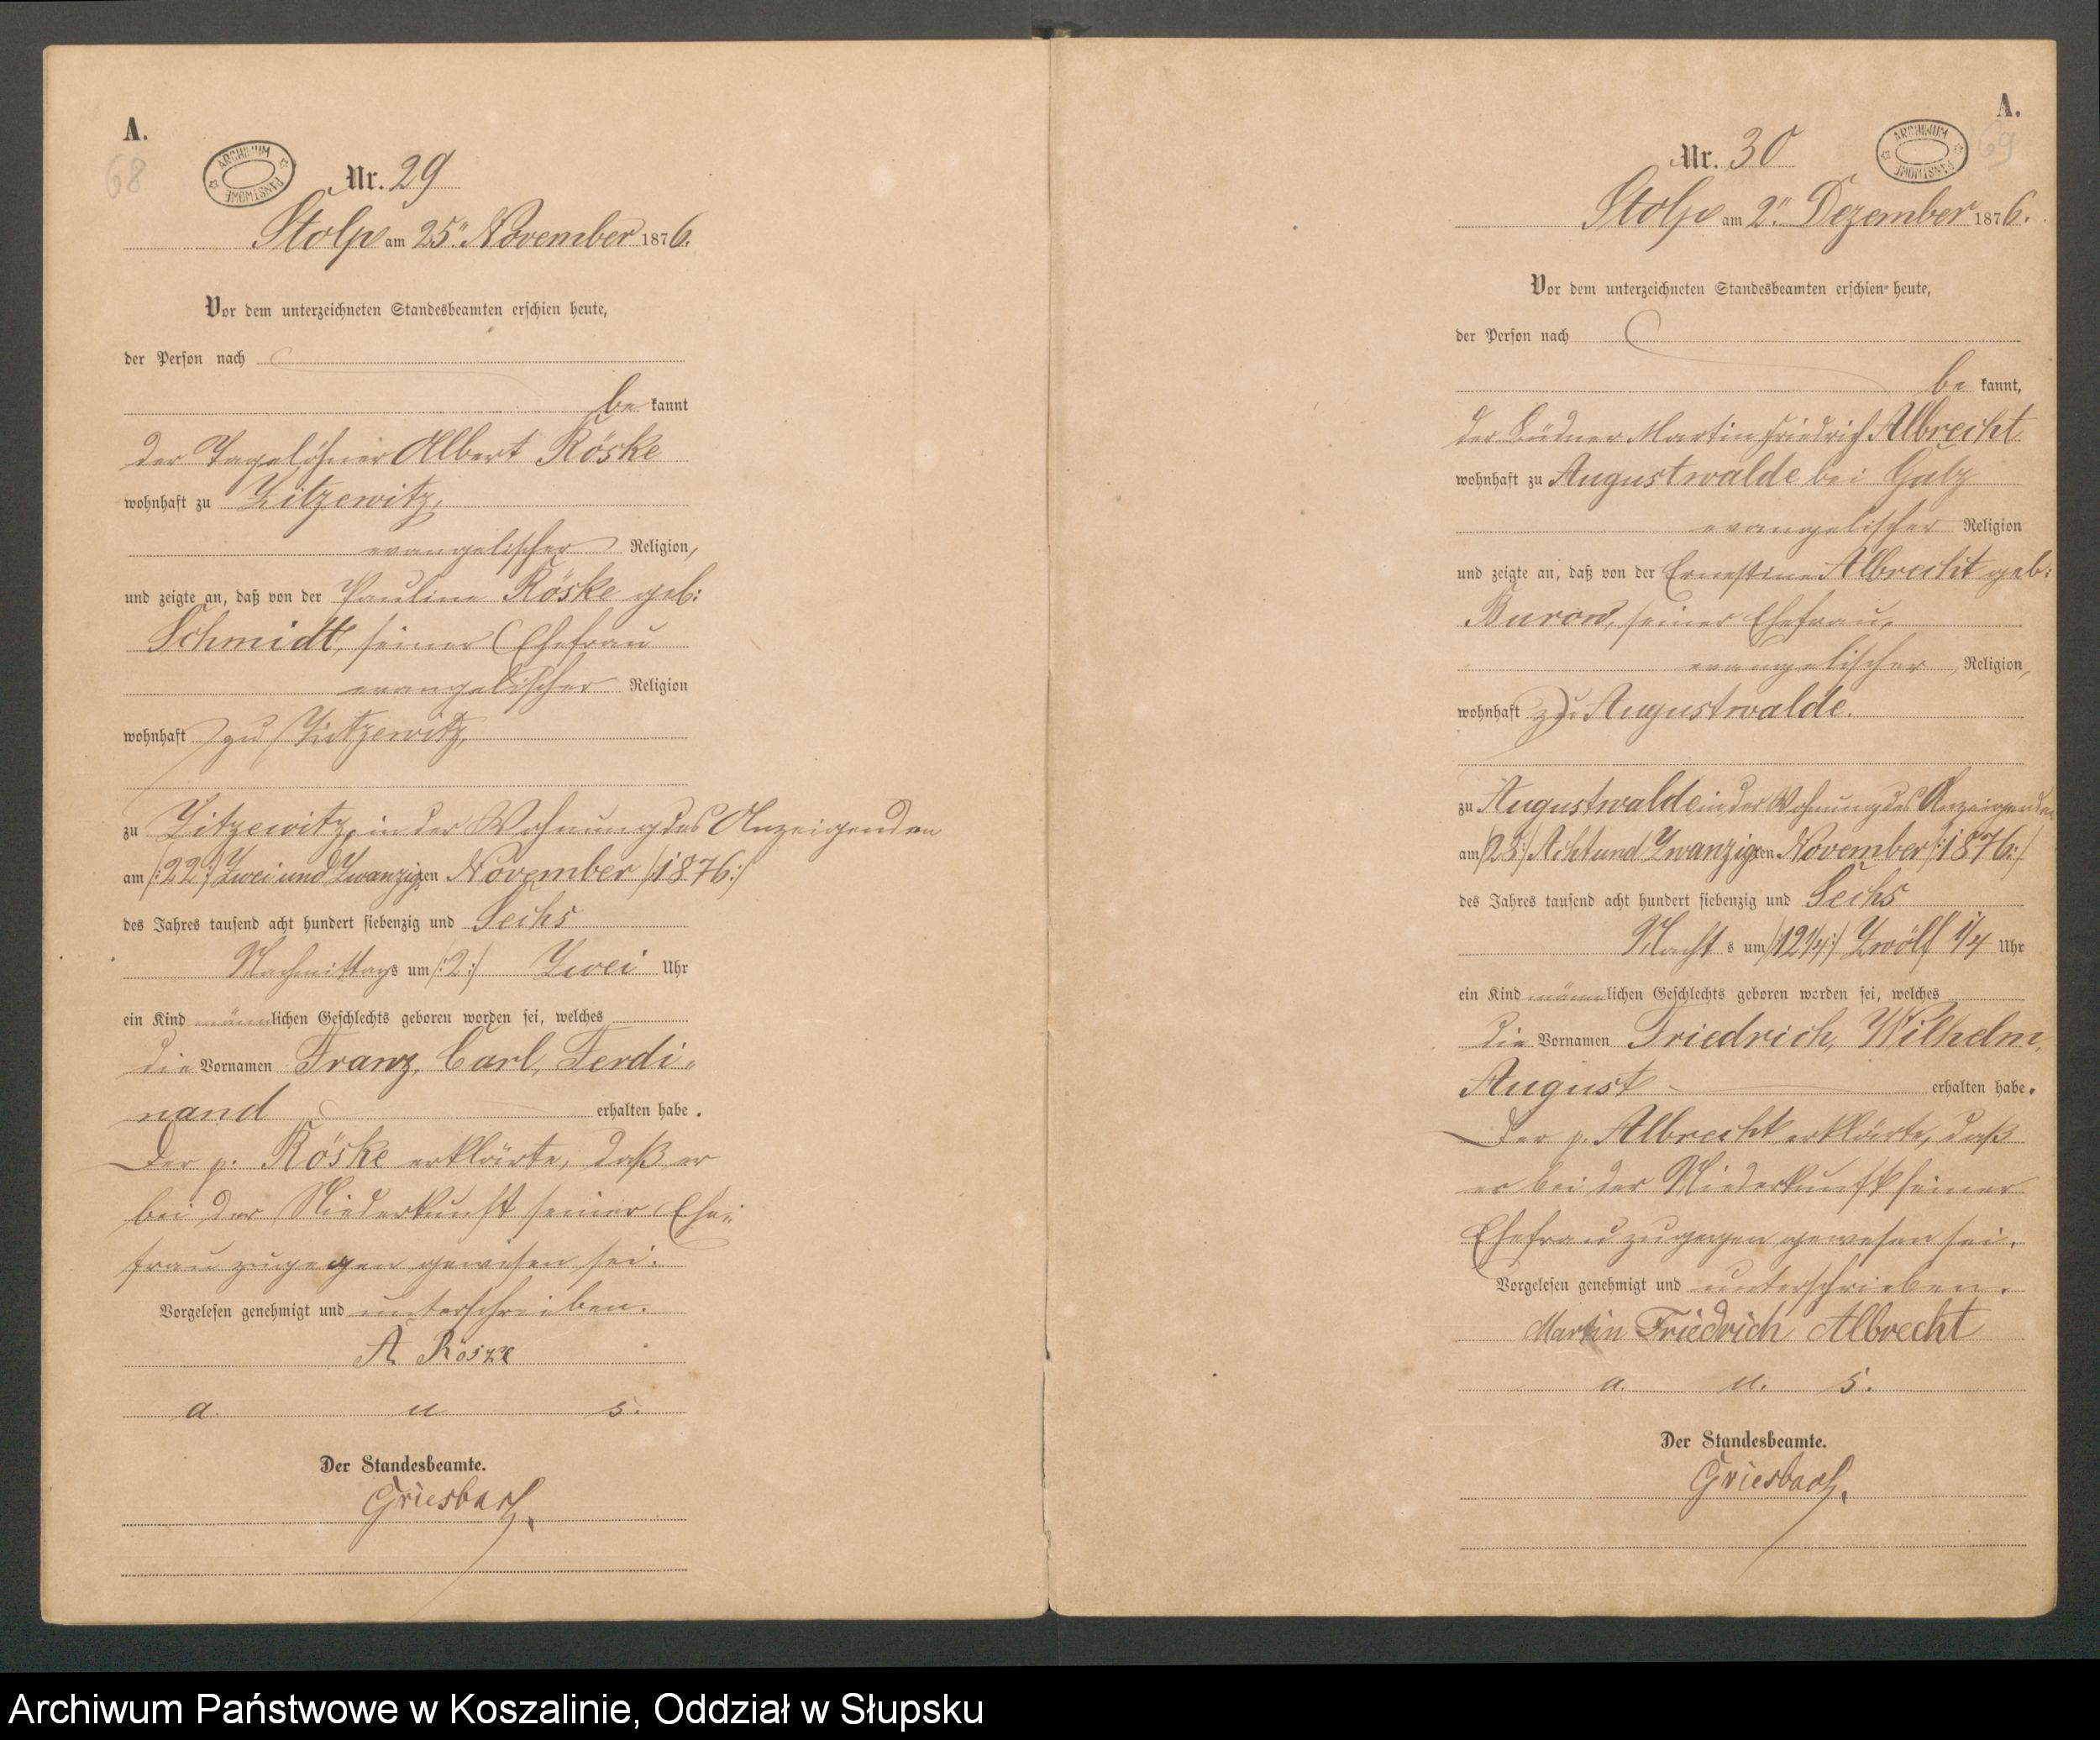 A.
68
ARCHIWUM PAŃSTWOWE
Nr. 29
Stolp am 25ⁿ November 1876.
Vor dem unterzeichneten Standesbeamten erschien heute,
der Person nach
be kannt
der Tagelöhner Albert Röske
wohnhaft zu Zitzewitz,
evangelischer Religion,
und zeigte an, daß von der Pauline Röske geb:
Schmidt, seiner Ehefrau
evangelischer Religion
wohnhaft zu Zitzewitz,
zu Zitzewitz, in der Wohnung des Anzeigenden
am /:22:/ Zwei und Zwanzigsten November /:1876:/
des Jahres tausend acht hundert siebenzig und Sechs
Nachmittags um /:2:/ Zwei Uhr
ein Kind männlichen Geschlechts geboren worden sei, welches
die Vornamen Franz, Carl, Ferdi-
nand erhalten habe.
Der p. Röske erklärte, daß er
bei der Niederkunft seiner Ehe-
frau zugegen gewesen sei.
Vorgelesen genehmigt und unterschrieben.
A. Röske
a. u. s.
Der Standesbeamte.
Griesbach.
A.
69
ARCHIWUM PAŃSTWOWE
Nr. 30
Stolp am 2ⁿ Dezember 1876.
Vor dem unterzeichneten Standesbeamten erschien heute,
der Person nach
be kannt,
der Büdner Martin Friedrich Albrecht
wohnhaft zu Augustwalde bei
evangelischer Religion
und zeigte an, daß von der Ernestine Albrecht geb:
Burow, seiner Ehefrau,
evangelischer Religion,
wohnhaft zu Augustwalde.
zu Augustwalde in der Wohnung des Anzeigenden
am /:28:/ Acht und Zwanzigsten November /:1876:/
des Jahres tausend acht hundert siebenzig und Sechs
Nachts um /:12¼:/ Zwölf ¼ Uhr
ein Kind männlichen Geschlechts geboren worden sei, welches
die Vornamen Friedrich, Wilhelm,
August erhalten habe.
Der p. Albrecht erklärte, daß
er bei der Niederkunft seiner
Ehefrau zugegen gewesen sei.
Vorgelesen genehmigt und unterschrieben.
Martin Friedrich Albrecht
a. u. s.
Der Standesbeamte.
Griesbach.
Archiwum Państwowe w Koszalinie, Oddział w Słupsku